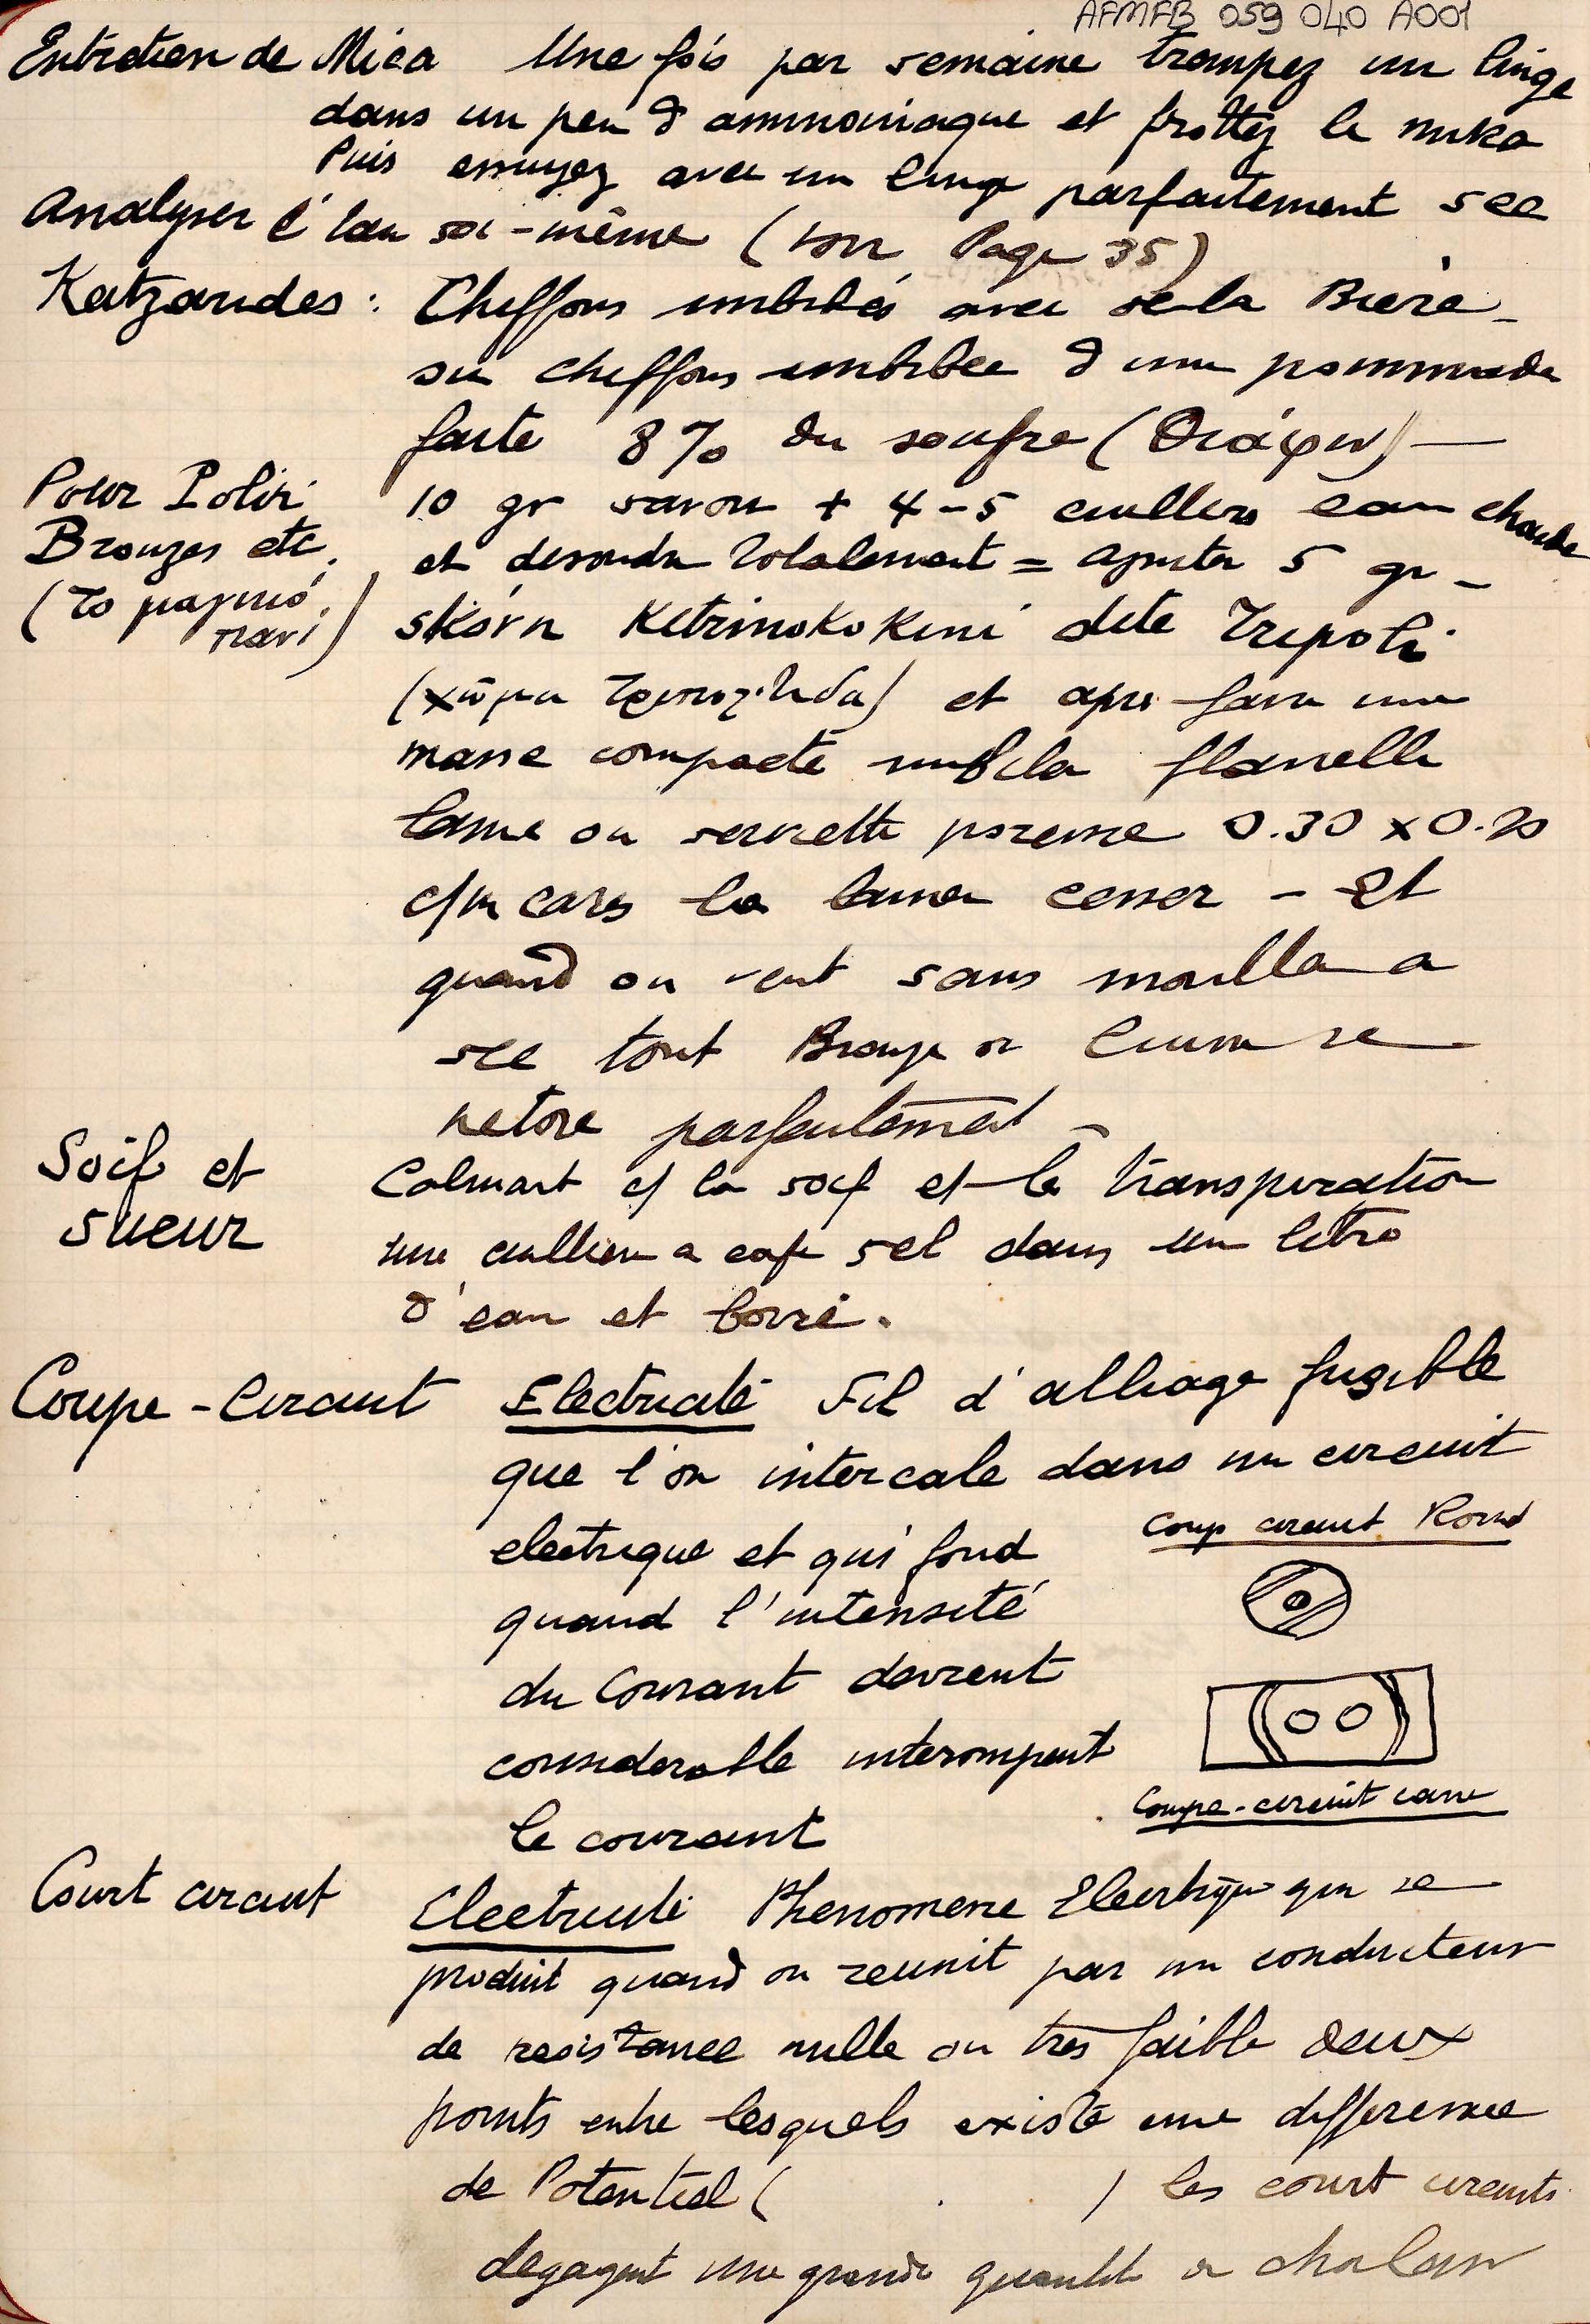 AFMFB 059 040 A001
Entretien de Mica Une fois par semaine trempez un linge
dans un peu d ammoniaque et frottez le mika
Puis essuyez avec un linge parfaitement sec
Analyser l'eau soi-même (voir Page 35)
Katzarides : Cheffons imbibés avec de la Biere
ou cheffons imbibee d une pommade
faite 8% du soufre (Θειάφιν) —
Pour Polir 10 gr savon + 4-5 cuillers eau chaude
Bronzes etc. et dessoudre totalement = ajouter 5 gr -
(το μαγικό skóvn Kitrinokokini dite Tripoli
πανί) (χώμα) et apres faire une
masse compacte imbiba flanelle
laine ou serviette poreuse 0.30 x 0.20
c/m cares la laisser secher - Et
quand on veut sans mouller a
sec tout Bronze ou cuivre se
netoie parfaitement -
Soif et Calmant c/ la soif et la transpiration
sueur une cuillere a cafe sel dans un litre
d'eau et boire.
Coupe-Circuit Electricité Fil d'alliage fusible
que l'on intercale dans un circuit
electrique et qui fond
quand l'intensité
du Courant devient
considerable interompent
le courant
Coup circuit Rond
Coupe-circuit carre
Court circuit Electricité Phenomene Electrique qui se
produit quand on reunit par un conducteur
de resistance nulle ou tres faible deux
points entre lesquels existe une difference
de Potentiel ( ) les court circuits
degagent une grande quantité de chaleur